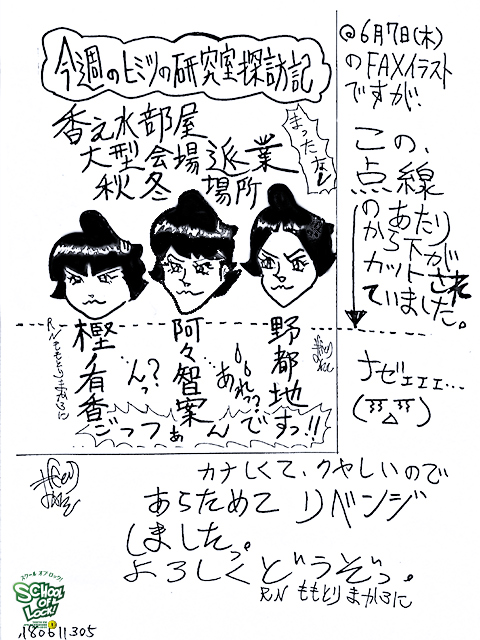 今週のヒミツの研究室探訪記
香之水部屋
大型会場巡業
秋冬場所
まったなし
樫ノ有香
阿々智案
野都地
んっ？
あれっ？
ごっつぁんですっ!!
RNももとりまかろに
@6月7日(木)
のFAXイラスト
ですが、
この、
点線
のあたり
から下が
カットされ
ていました。
ナゼェェェ…
カナしくて、クヤしいので
あらためてリベンジ
しましたっ。
よろしくどうぞっ。
RN ももとりまかろに
スクール オブ ロック!
SCHOOL OF LOCK!
180611305